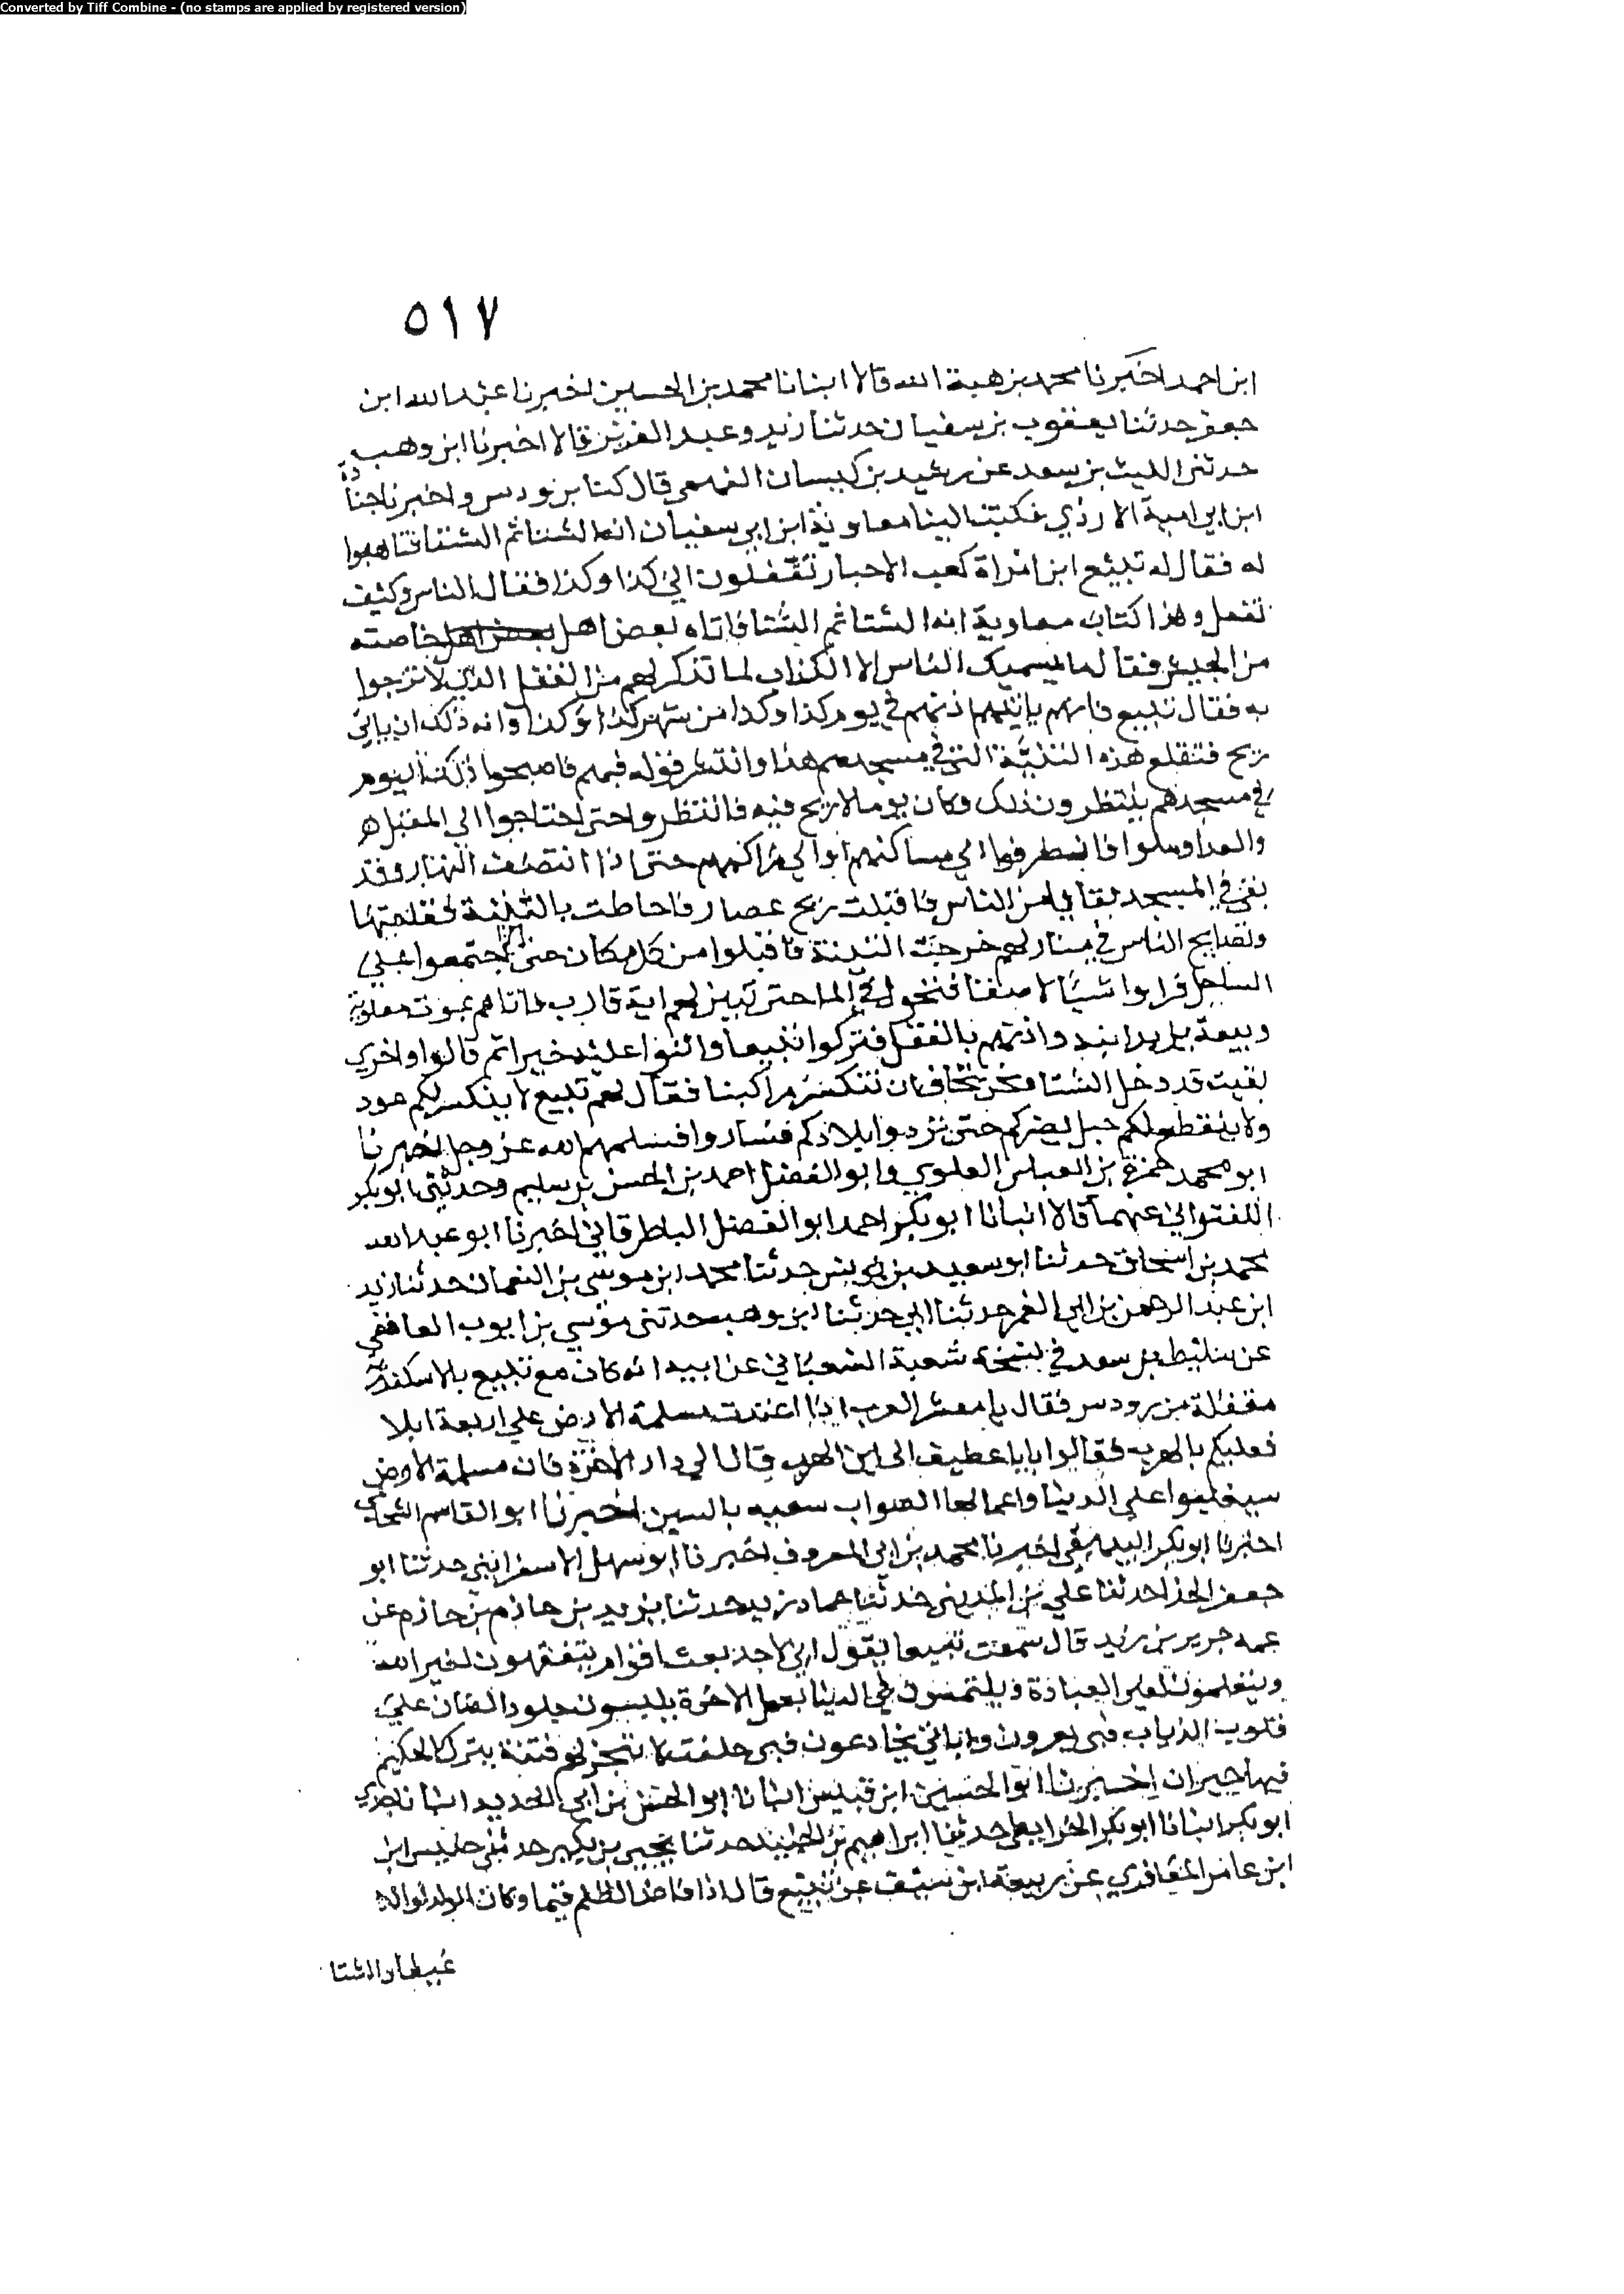 Converted by Tiff Combine - (no stamps are applied by registered version)
٥١٧
ابن احمد اخبرنا محمد بن هبة الله قالا انبانا محمد بن الحسين اخبرنا عبد الله ابن
جعفر حدثنا يعقوب بن سفيان حدثنا زيد وعبد العزيز قالا اخبرنا ابن وهب
حدثني الليث بن سعد عن رشيد بن كيسان الفهمي قال كنا برودس واخبرنا جنادة
ابن ابي امية الازدي فكتب الينا معاوية ابن ابي سفيان انه الشتا ثم الشتا فتاهبوا
له فقال له تبيع ابن امراة كعب الاحبار تقفلون الي كذا وكذا فقال الناس وكيف
نفعل وهذا كتاب معاوية انه الشتا ثم الشتا فاتاه بعض اهل خاصته
من الجيش فقال ما يسميك الناس الا الكذاب لما تذكر لهم من القفل الذي لا يرجوا
به فقال تبيع فانهم ياتيهم اذنهم في يوم كذا وكذا من شهر كذا وكذا وانه ذلك ان ياتي
ريح فتقلع هذه التي في مسجدهم هذا وانتشر قوله فيهم فاصبحوا ذلك اليوم
في مسجدهم ينتظرون ذلك وكان يوما لا ريح فيه فانتظروا حتي احتاجوا الي المقيل
والغدا وملوا الي مساكنهم او الي مراكبهم حتي اذا انتصف النهار وقد
بقي في المسجد بقايا من الناس فاقبلت ريح عصار فاحاطت
وتصايح الناس في منازلهم خرجت فاقبلوا من كل مكان حتي اجتمعوا علي
الساحل فراوا شيئا في الما حتي تبين لهم انه قارب فاتاهم بموت معاوية
وبيعة يزيد ابنه واذنهم بالقفل فتركوا تبيعا واثنوا عليه خيرا ثم قالوا واخري
بقيت قد دخل الشتا ونحن نخاف ان تنكسر مراكبنا فقال لهم تبيع لا ينكسر لكم عود
ولا ينقطع لكم حبل يضركم حتي تردوا بلادكم فساروا فسلمهم الله عز وجل اخبرنا
ابو محمد حمزة بن العباس العلوي وابو الفضل احمد بن الحسن بن سليم وحدثني ابو بكر
اللفتواني عنهما قالا انبانا ابو بكر احمد ابو الفضل الباطرقاني اخبرنا ابو عبد الله
محمد بن اسحاق حدثنا ابو سعيد بن يونس حدثنا محمد ابن موسي بن النعمان حدثنا زيد
ابن عبد الرحمن بن ابي الغمر حدثنا ابي حدثنا ابن وهب حدثني موسي بن ايوب الغافقي
عن سليط بن سعد في نسخة شعبة الشعباني عن ابيه انه كان مع تبيع بالاسكندرية
مقفلة من رودس فقال يا معشر العرب اذا مسلمة الارض علي اربعة ابلا
فعليكم بالهرب فقالوا يابا عطيف الي اين الهرب قال الي دار الاخرة فان مسلمة الارض
سيغلبوا علي الدنيا واعمالها الصواب سعيه بالسين اخبرنا ابو القاسم الشحامي
اخبرنا ابو بكر البيهقي اخبرنا محمد بن ابي المعروف اخبرنا ابو سهل الاسفرايني حدثنا ابو
جعفر الحذا حدثنا علي بن المديني حدثنا حماد زيد حدثنا يزيد بن حازم بن حازم عن
عمه جرير بن زيد قال سمعت تبيعا يقول اني لاجد بعث اقوام يتفقهون لغير الله
ويتعلمون لغير العبادة ويلتمسون الدنيا بعمل الاخرة يلبسون جلود الضان علي
قلوب الذياب فبي يغرون واياي يخادعون فبي حلفت فتنة يترك الحكيم
فيها حيران اخبرنا ابو الحسين ابن قبيس انبانا ابو الحسن بن ابي الحديد انبانا جدي
ابو بكر انبانا ابو بكر الخرايطي حدثنا ابراهيم بن الجنيد حدثنا يحيي بن بكير حدثني
ابن عامر المعافري عن ربيعة ابن سيف عن تبيع قال اذا فاض الظلم فيما وكان الولد لوالده
غيظا والشتا